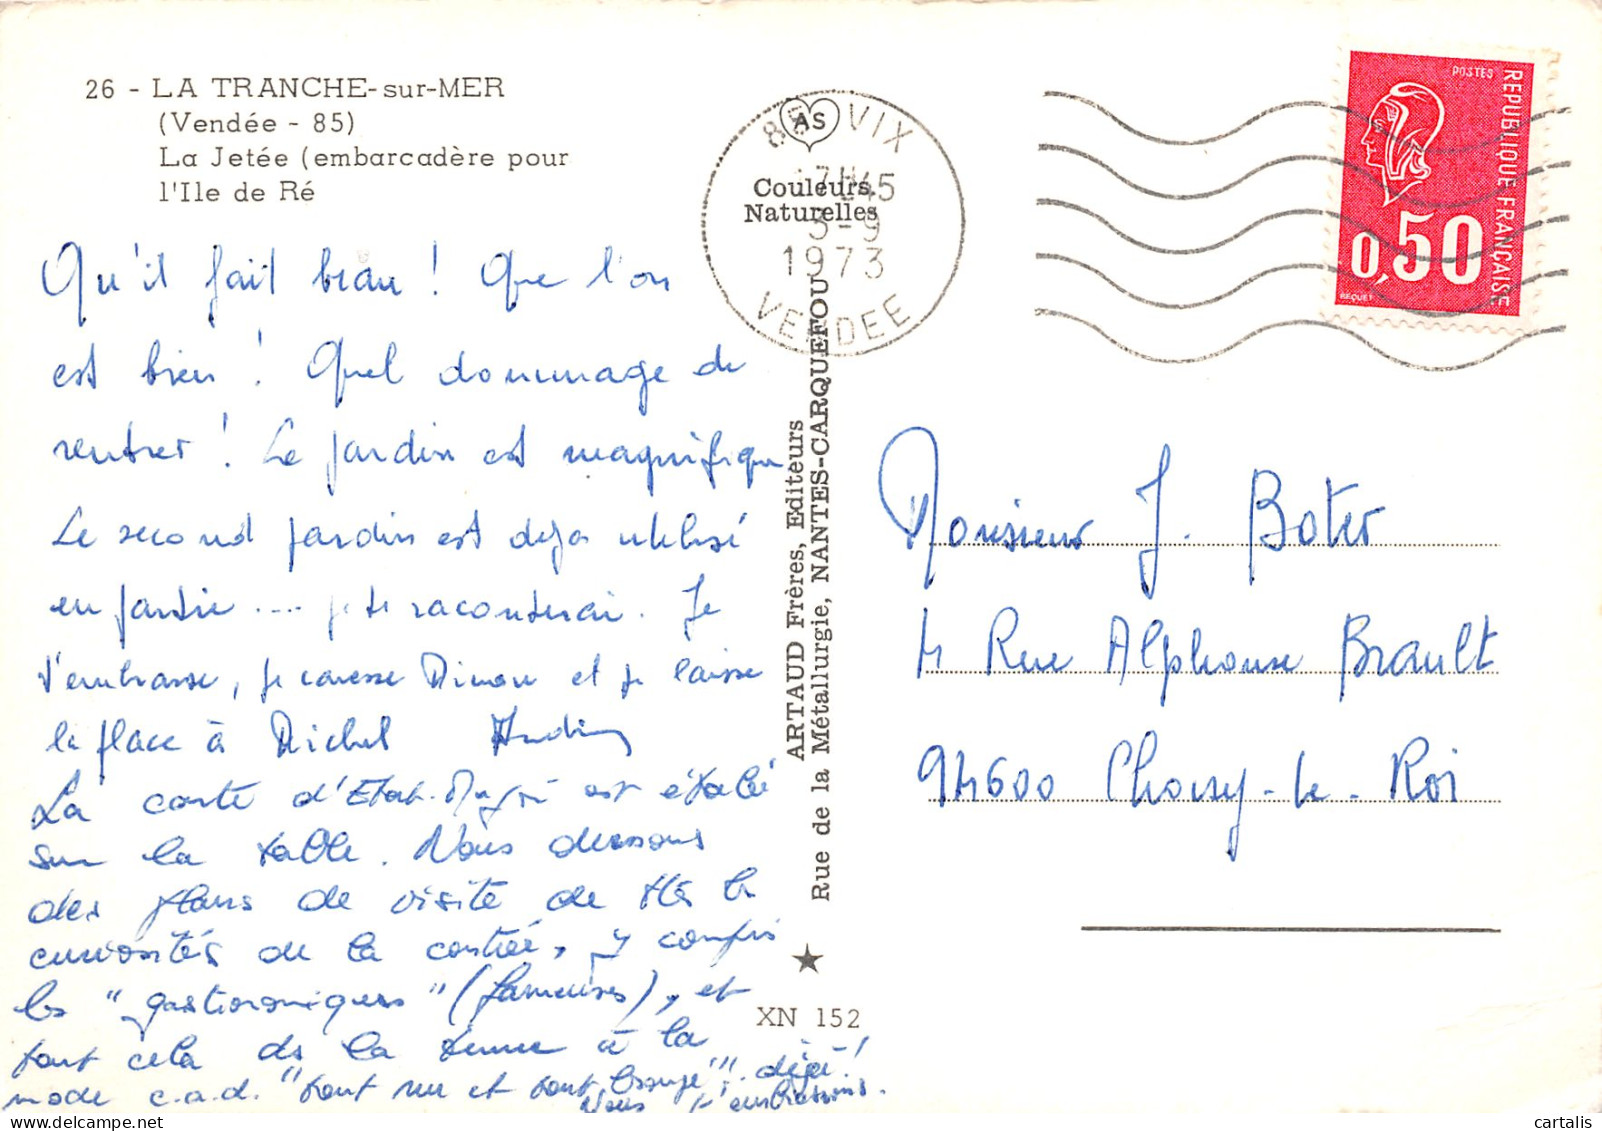 26 - LA TRANCHE-sur-MER
(Vendée - 85)
La Jetée (embarcadère pour
l'Ile de Ré
Qu'il fait beau ! Que l'on
est bien ! Quel dommage de
rentrer ! Le jardin est magnifique
Le second jardin est déjà utilisé
en partie .... je te raconterai. Je
t'embrasse, je caresse et je laisse
la place à Michel
La carte d'Etat-Major est étalée
sur la table. Nous dressons
des plans de visite de ttes les
curiosités de la contrée, y compris
les "gastronomiques" (fameuses), et
tout cela ds la tenue à la
mode c.a.d. "tout nu et tout bronzé"! déjà!
Nous t'embrassons.
AS
Couleurs
Naturelles
85 VIX
7H45
3-9
1973
VENDEE
ARTAUD Frères, Editeurs
Rue de la Métallurgie, NANTES-CARQUEFOU
XN 152
POSTES
REPUBLIQUE FRANÇAISE
0,50
BEQUET
Monsieur J. Boter
4 Rue Alphonse Brault
94600 Choisy-le-Roi
cartalis.com